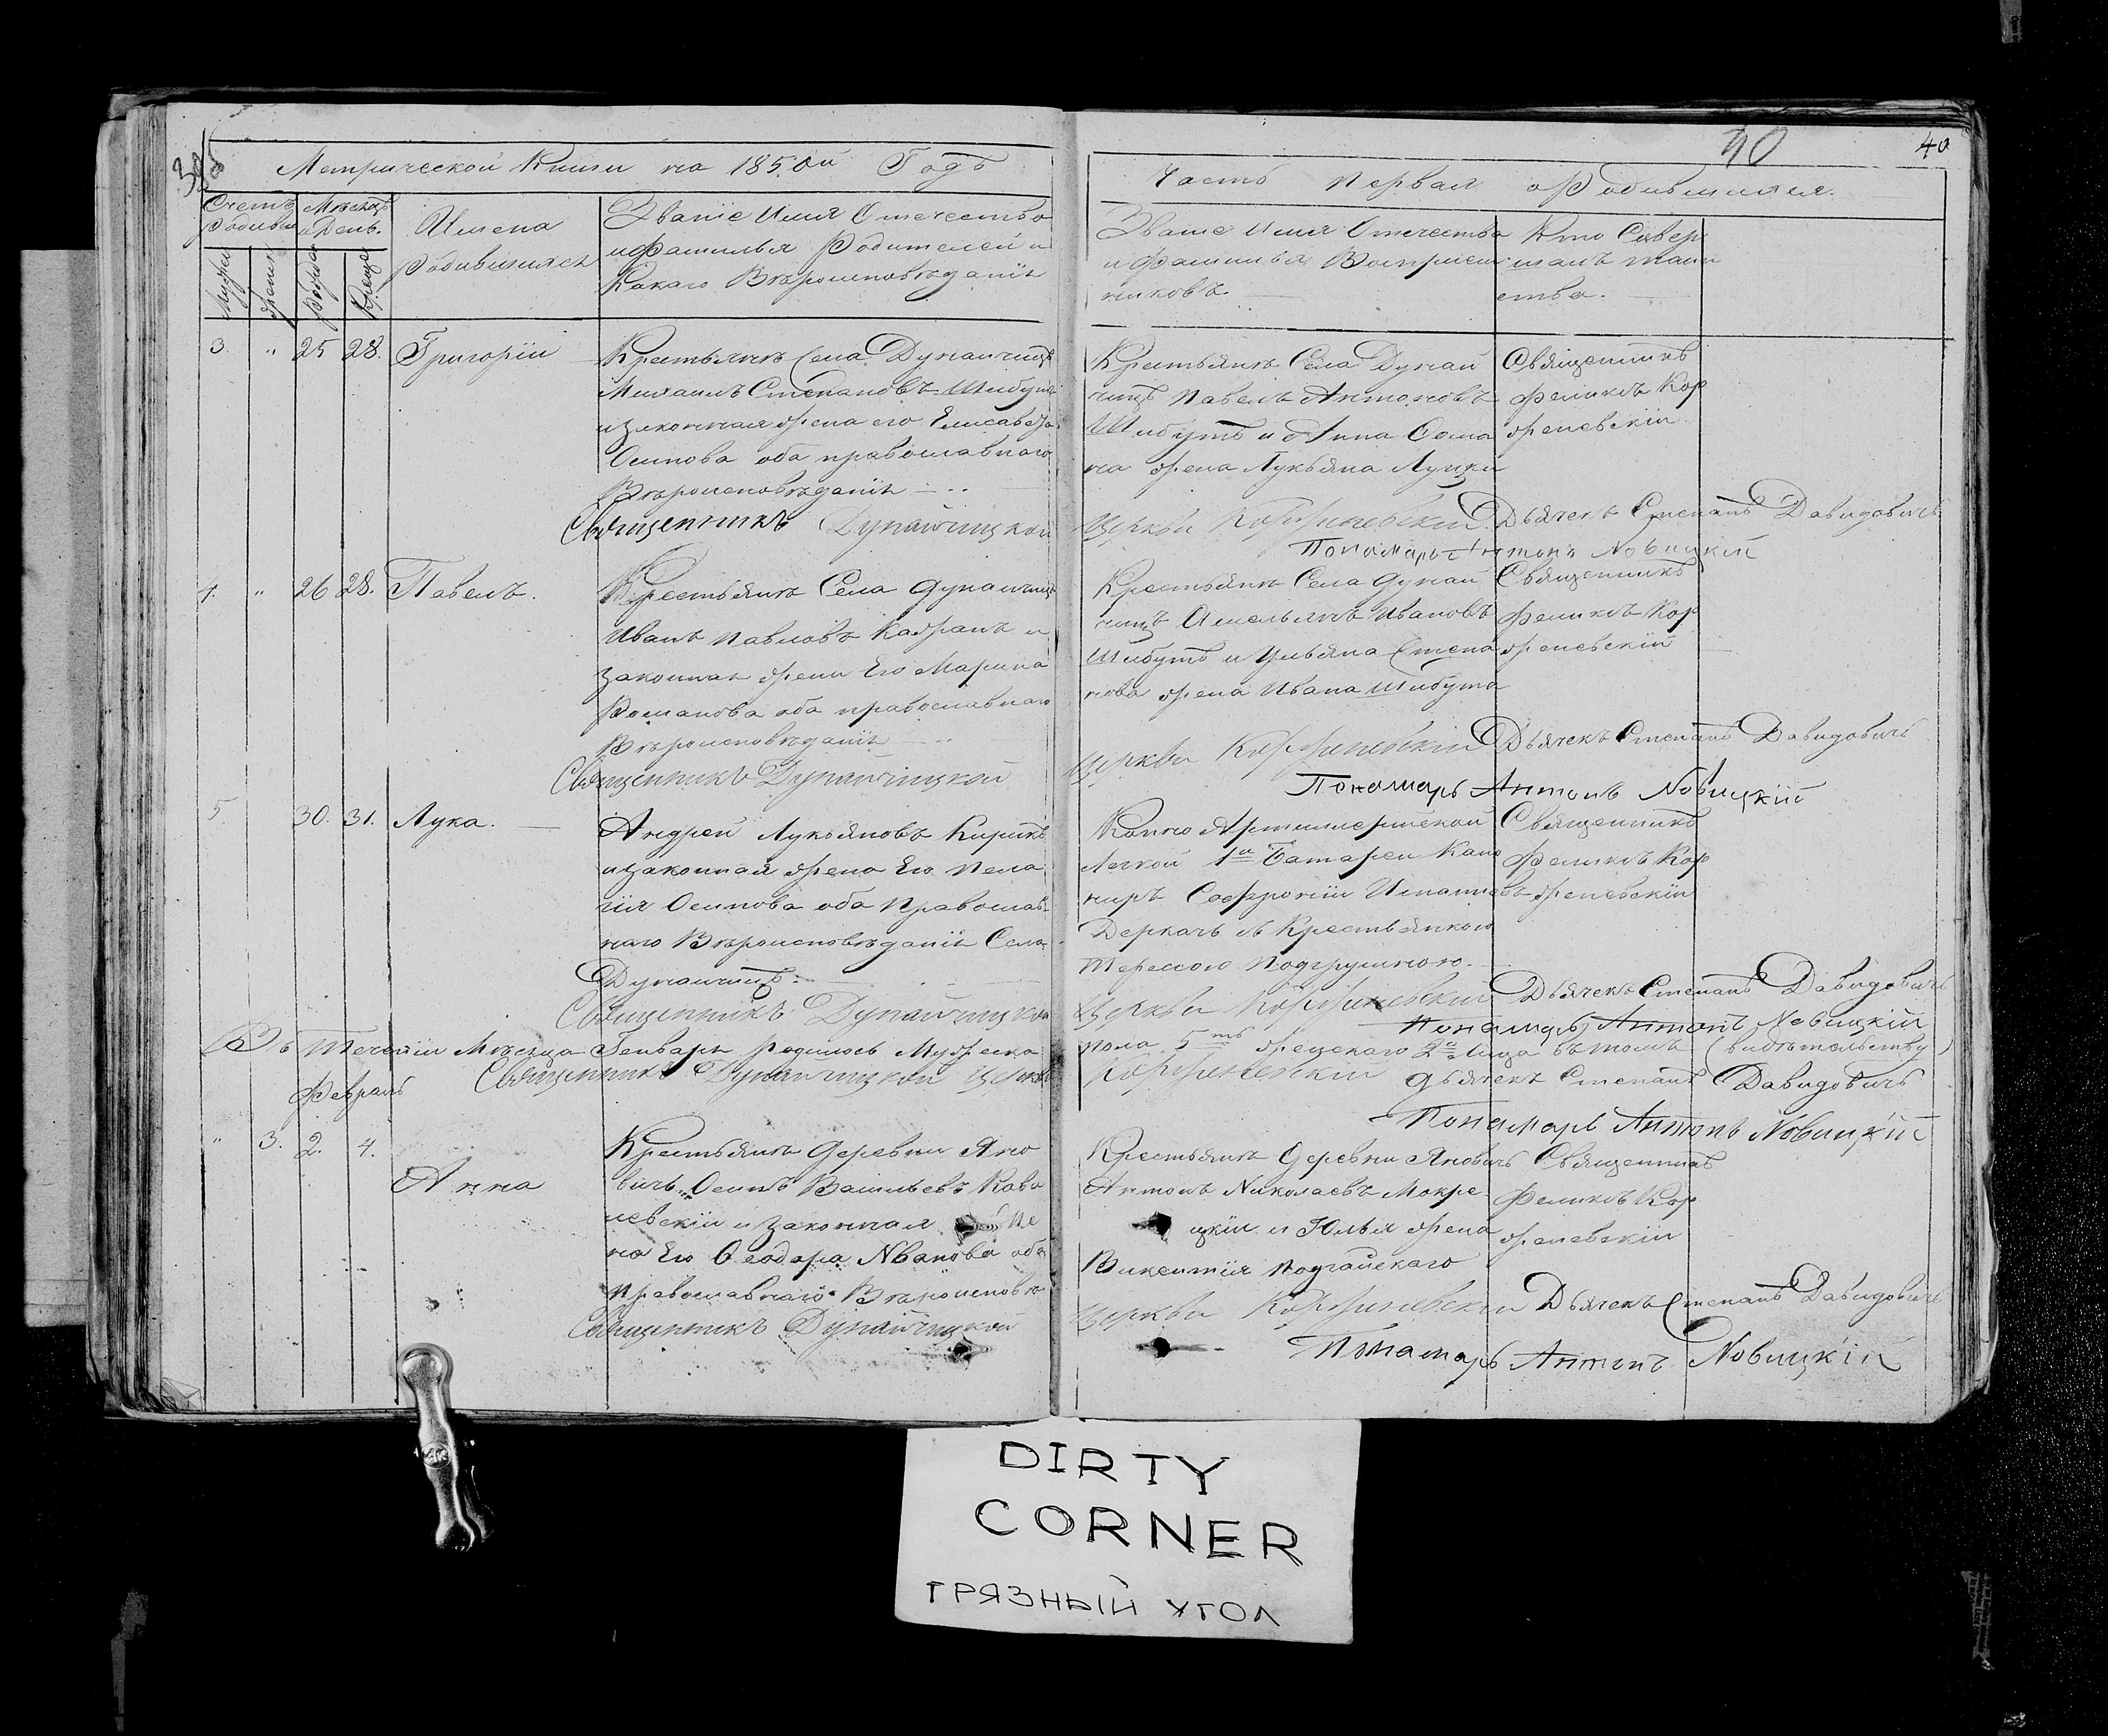 Метрической Книги на 1850й Годъ
Счетъ родивш
Мѣсяцъ и День.
Имена родившихся
Званіе Имя Отечество
и фамилья Родителей и
Какаго Вѣроисповѣданія
3. " 25 28. Григорій
Крестьянъ Села Дунайчицъ
Михаилъ Степановъ Шибутъ
и законная жена его Елисавета
Осипова оба православнаго
Вѣроисповѣданія
Священникъ Дунайчицкой
4. " 26 28. Павелъ.
Крестьянъ Села Дунайчицъ
Иванъ Павловъ Кажанъ и
законная жена Его Марина
Романова оба православнаго
Вѣроисповѣданія
Священникъ Дунайчицкой
5 30. 31. Лука.
Андрей Лукьяновъ Кирикъ
и законная жена Его Пела
гія Осипова оба Православ
наго Вѣроисповѣданія Села
Дунайчицъ.
Священникъ Дунайчицкой
Въ Теченіи Мѣсяца Генваря родилось Мужеска
Священникъ Дунайчицкой Церкви
Февраль
" 3. 2. 4.
Анна
Крестьянъ Деревни Яно
вичь Осипъ Васильевъ Кова
левскій и законная же
на Его Феодора Иванова оба
Православнаго Вѣроисповѣ
Священникъ Дунайчицкой
40
40
Часть Первая о Родившихся.
Званіе Имя Отечество
и Фамилья Воспріем
никовъ.
Кто Совер
шалъ таин
ства.
Крестьянъ Села Дунай
чицъ Павелъ Антоновъ
Шибутъ и Анна Фома
на жена Лукьяна Лущи
Священникъ
Феликсъ Кор
женевскій
Церкви Корженевскій Дьячекъ Степанъ Давидовичъ
Пономарь Антонъ Новицкій
Крестьянъ Села Дунай
чицъ Амельянъ Ивановъ
Шибутъ и Ульяна Степа
нова жена Ивана Шибута
Священникъ
Феликсъ Кор
женевскій
Церкви Корженевскій Дьячекъ Степанъ Давидовичъ
Пономарь Антонъ Новицкій
Конно Артиллерійской
Легкой 1й Батареи Кано
ниръ Софроній Игнатьевъ
Деркачь с Крестьянкою
Терессою Подгрушною.
Священникъ
Феликсъ Кор
женевскій
Церкви Корженевскій Дьячекъ Степанъ Давидовичъ
Пономарь Антонъ Новицкій
пола 5ть женскаго 2а Лица въ томъ свидѣтельству
Корженевскій Дьячекъ Степанъ Давидовичъ
Пономарь Антонъ Новицкій
Крестьянъ Деревни Яновичь
Антонъ Николаевъ Мокре
цкій и Юлья жена
Викентія Подгайскаго
Священникъ
Феликсъ Кор
женевскій
Церкви Корженевскій Дьячекъ Степанъ Давидовичъ
Пономарь Антонъ Новицкій
DIRTY
CORNER
ГРЯЗНЫЙ УГОЛ